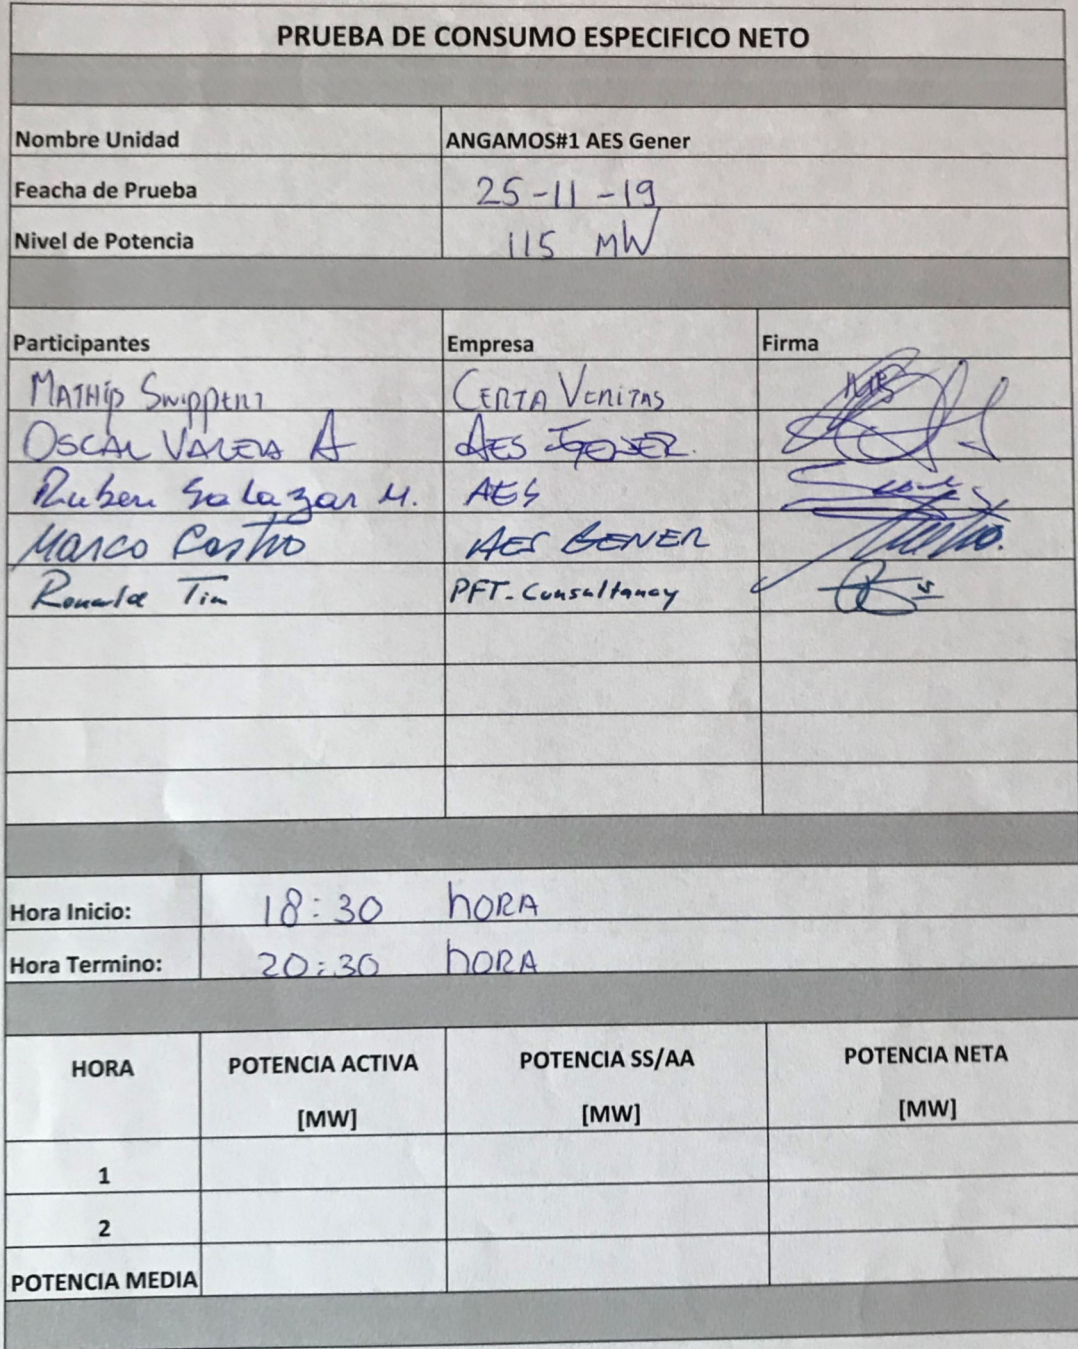 PRUEBA DE CONSUMO ESPECIFICO NETO
Nombre Unidad ANGAMOS#1 AES Gener
Feacha de Prueba 25-11-19
Nivel de Potencia 115 MW
Participantes Empresa Firma
CERTA VERITAS
OSCAR A AES GENER
Ruben Salazar M. AES
Marco Castro AES GENER
Ronald Tim PFT-Consultancy
Hora Inicio: 18:30 hORA
Hora Termino: 20:30 hORA
HORA POTENCIA ACTIVA POTENCIA SS/AA POTENCIA NETA
[MW] [MW] [MW]
1
2
POTENCIA MEDIA